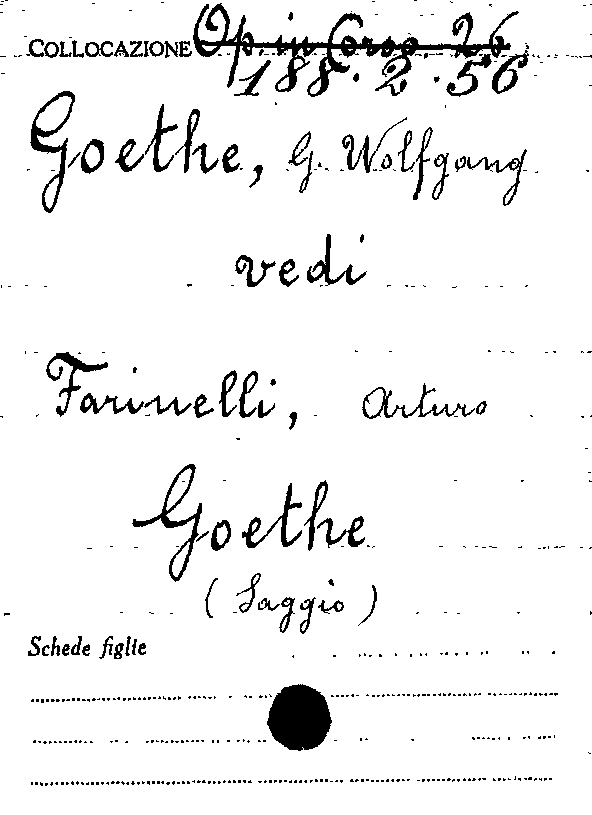 COLLOCAZIONE Op. in Corso. 26
188.2.56
Goethe, G. Wolfgang
vedi
Farinelli, Arturo
Goethe
(Saggio)
Schede figlie